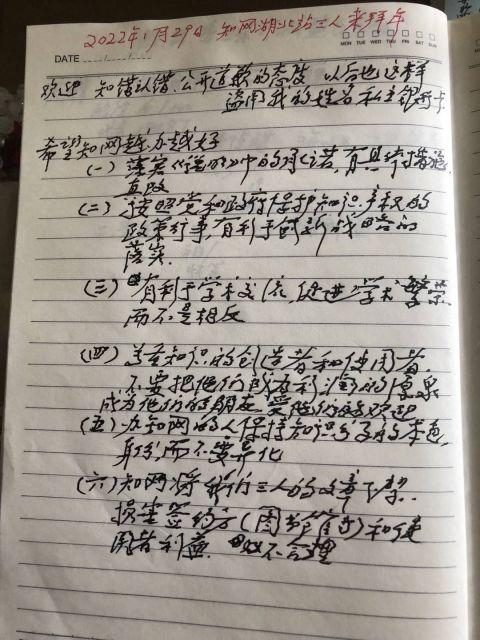 2022年1月29日 知网湖北站三人来拜年
MON TUE WED THU FRI SAT SUN
DATE
欢迎 知错认错、公开道歉的态度 以后也这样
盗用我的姓名私立银行卡
希望知网越办越好
(一) 落实《说明》中的承诺,有具体措施
(二) 按照党和政府保护知识产权的
政策行事,有利于创新战略的
落实
(三) 有利于学术交流,促进学术繁荣
而不是相反
(四) 善待知识的创造者和使用者,
不要把他们
成为他们的朋友 受他们的欢迎
(五) 办知网的人保持知识分子的本色
身份而不要异化
(六) 知网将我们三人的文章下架
损害签约方(图书馆)和使
用者利益 不合理